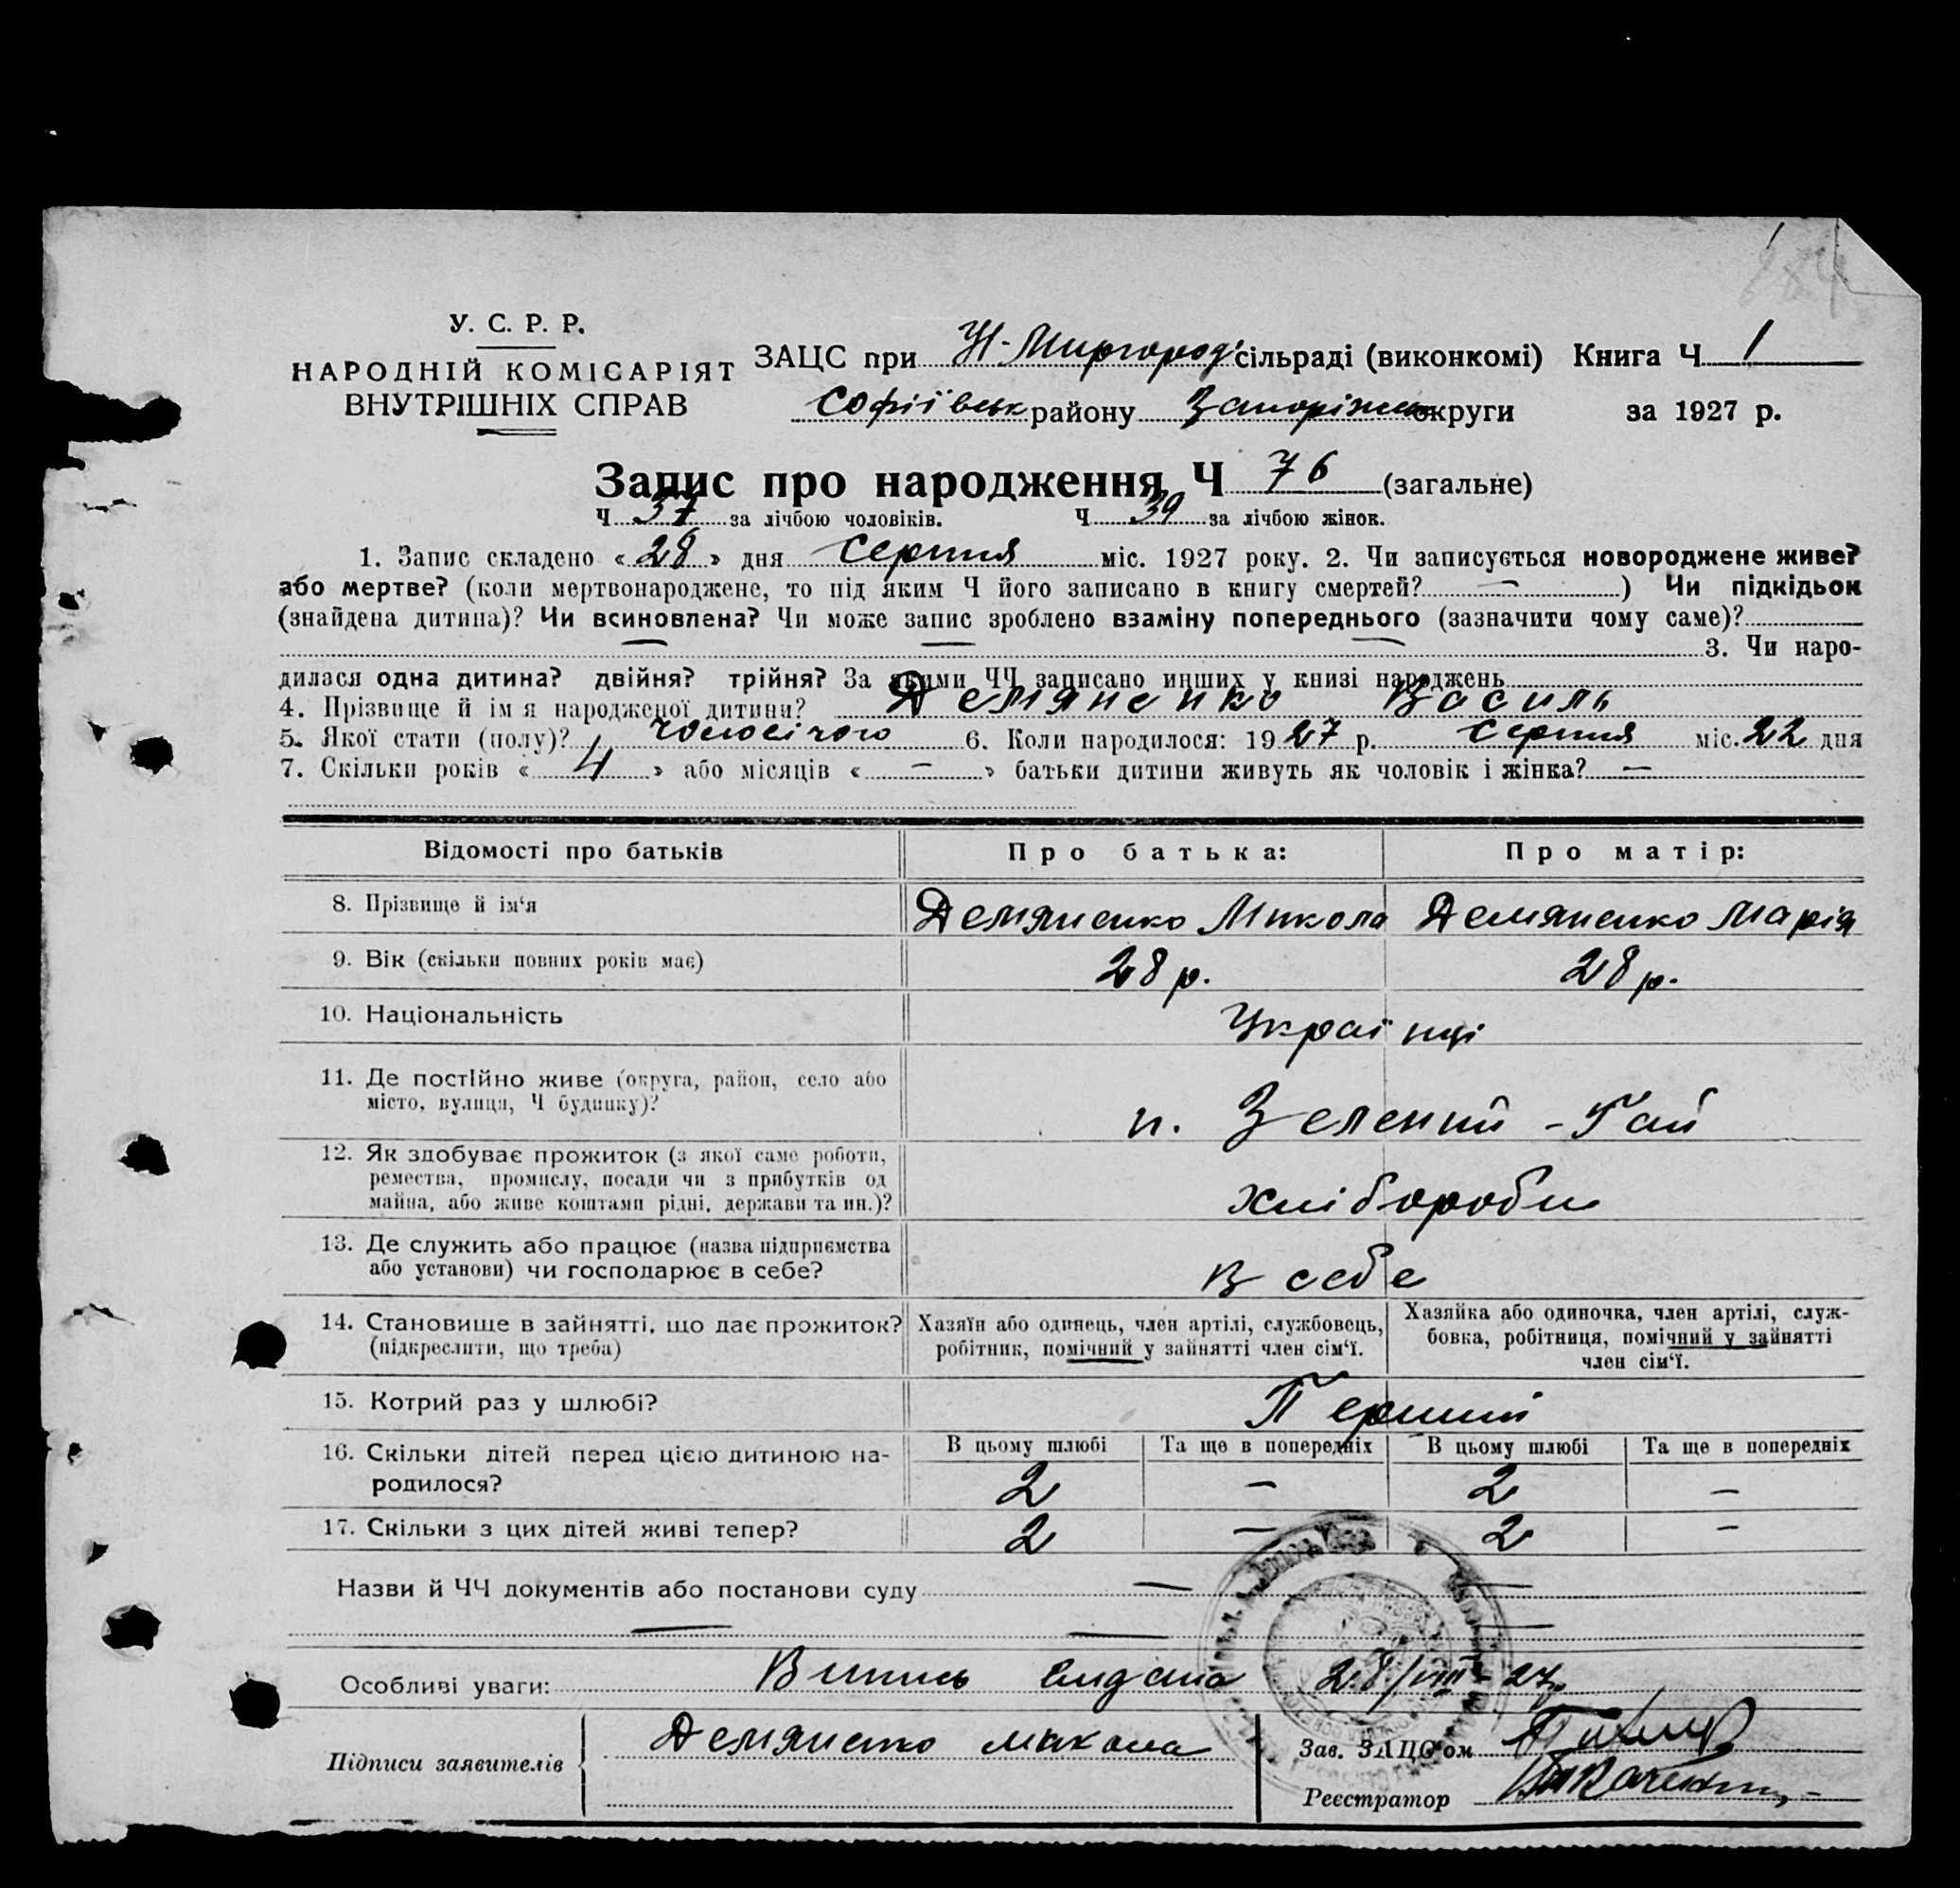 284
У. С. Р. Р.
НАРОДНІЙ КОМІСАРІЯТ
ВНУТРІШНІХ СПРАВ
ЗАЦС при Н-Миргород. сільраді (виконкомі) Книга Ч 1
Софіївськ району Запоріжськ округи за 1927 р.
Запис про народження Ч 76 (загальне)
Ч 37 за лічбою чоловіків. Ч 39 за лічбою жінок.
1. Запис складено «28» дня серпня міс. 1927 року. 2. Чи записується новороджене живе?
або мертве? (коли мертвонароджене, то під яким Ч його записано в книгу смертей? — ) Чи підкідьок
(знайдена дитина)? Чи всиновлена? Чи може запис зроблено взаміну попереднього (зазначити чому саме)?
— — — 3. Чи наро-
дилася одна дитина? двійня? трійня? За якими ЧЧ записано инших у книзі народжень
4. Прізвище й ім я народженої дитини? Демяненко Василь
5. Якої стати (полу)? Чоловічого 6. Коли народилося: 1927 р. серпня міс. 22 дня
7. Скільки років « 4 » або місяців « — » батьки дитини живуть як чоловік і жінка? —
Відомості про батьків Про батька: Про матір:
8. Прізвище й ім‘я Демяненко Микола Демяненко Марія
9. Вік (скільки повних років має) 28 р. 28 р.
10. Національність Українці
11. Де постійно живе (округа, район, село або
місто, вулиця, Ч будинку)? п. Зелений-Гай
12. Як здобуває прожиток (з якої саме роботи,
ремества, промислу, посади чи з прибутків од
майна, або живе коштами рідні, держави та ин.)? хлібороби
13. Де служить або працює (назва підприємства
або установи) чи господарює в себе? в себе
14. Становище в зайнятті, що дає прожиток?
(підкреслити, що треба)
Хазяїн або одинець, член артілі, службовець,
робітник, помічний у зайнятті член сім‘ї.
Хазяйка або одиночка, член артілі, служ-
бовка, робітниця, помічний у зайнятті
член сім‘ї.
15. Котрий раз у шлюбі? Перший
В цьому шлюбі Та ще в попередніх В цьому шлюбі Та ще в попередніх
16. Скільки дітей перед цією дитиною на-
родилося? 2 — 2 —
17. Скільки з цих дітей живі тепер? 2 — 2 —
Назви й ЧЧ документів або постанови суду — —
— — —
Особливі уваги: Випись видана 28/VIII 27р.
Підписи заявителів Демяненко микола
Зав. ЗАЦС'ом
Реєстратор